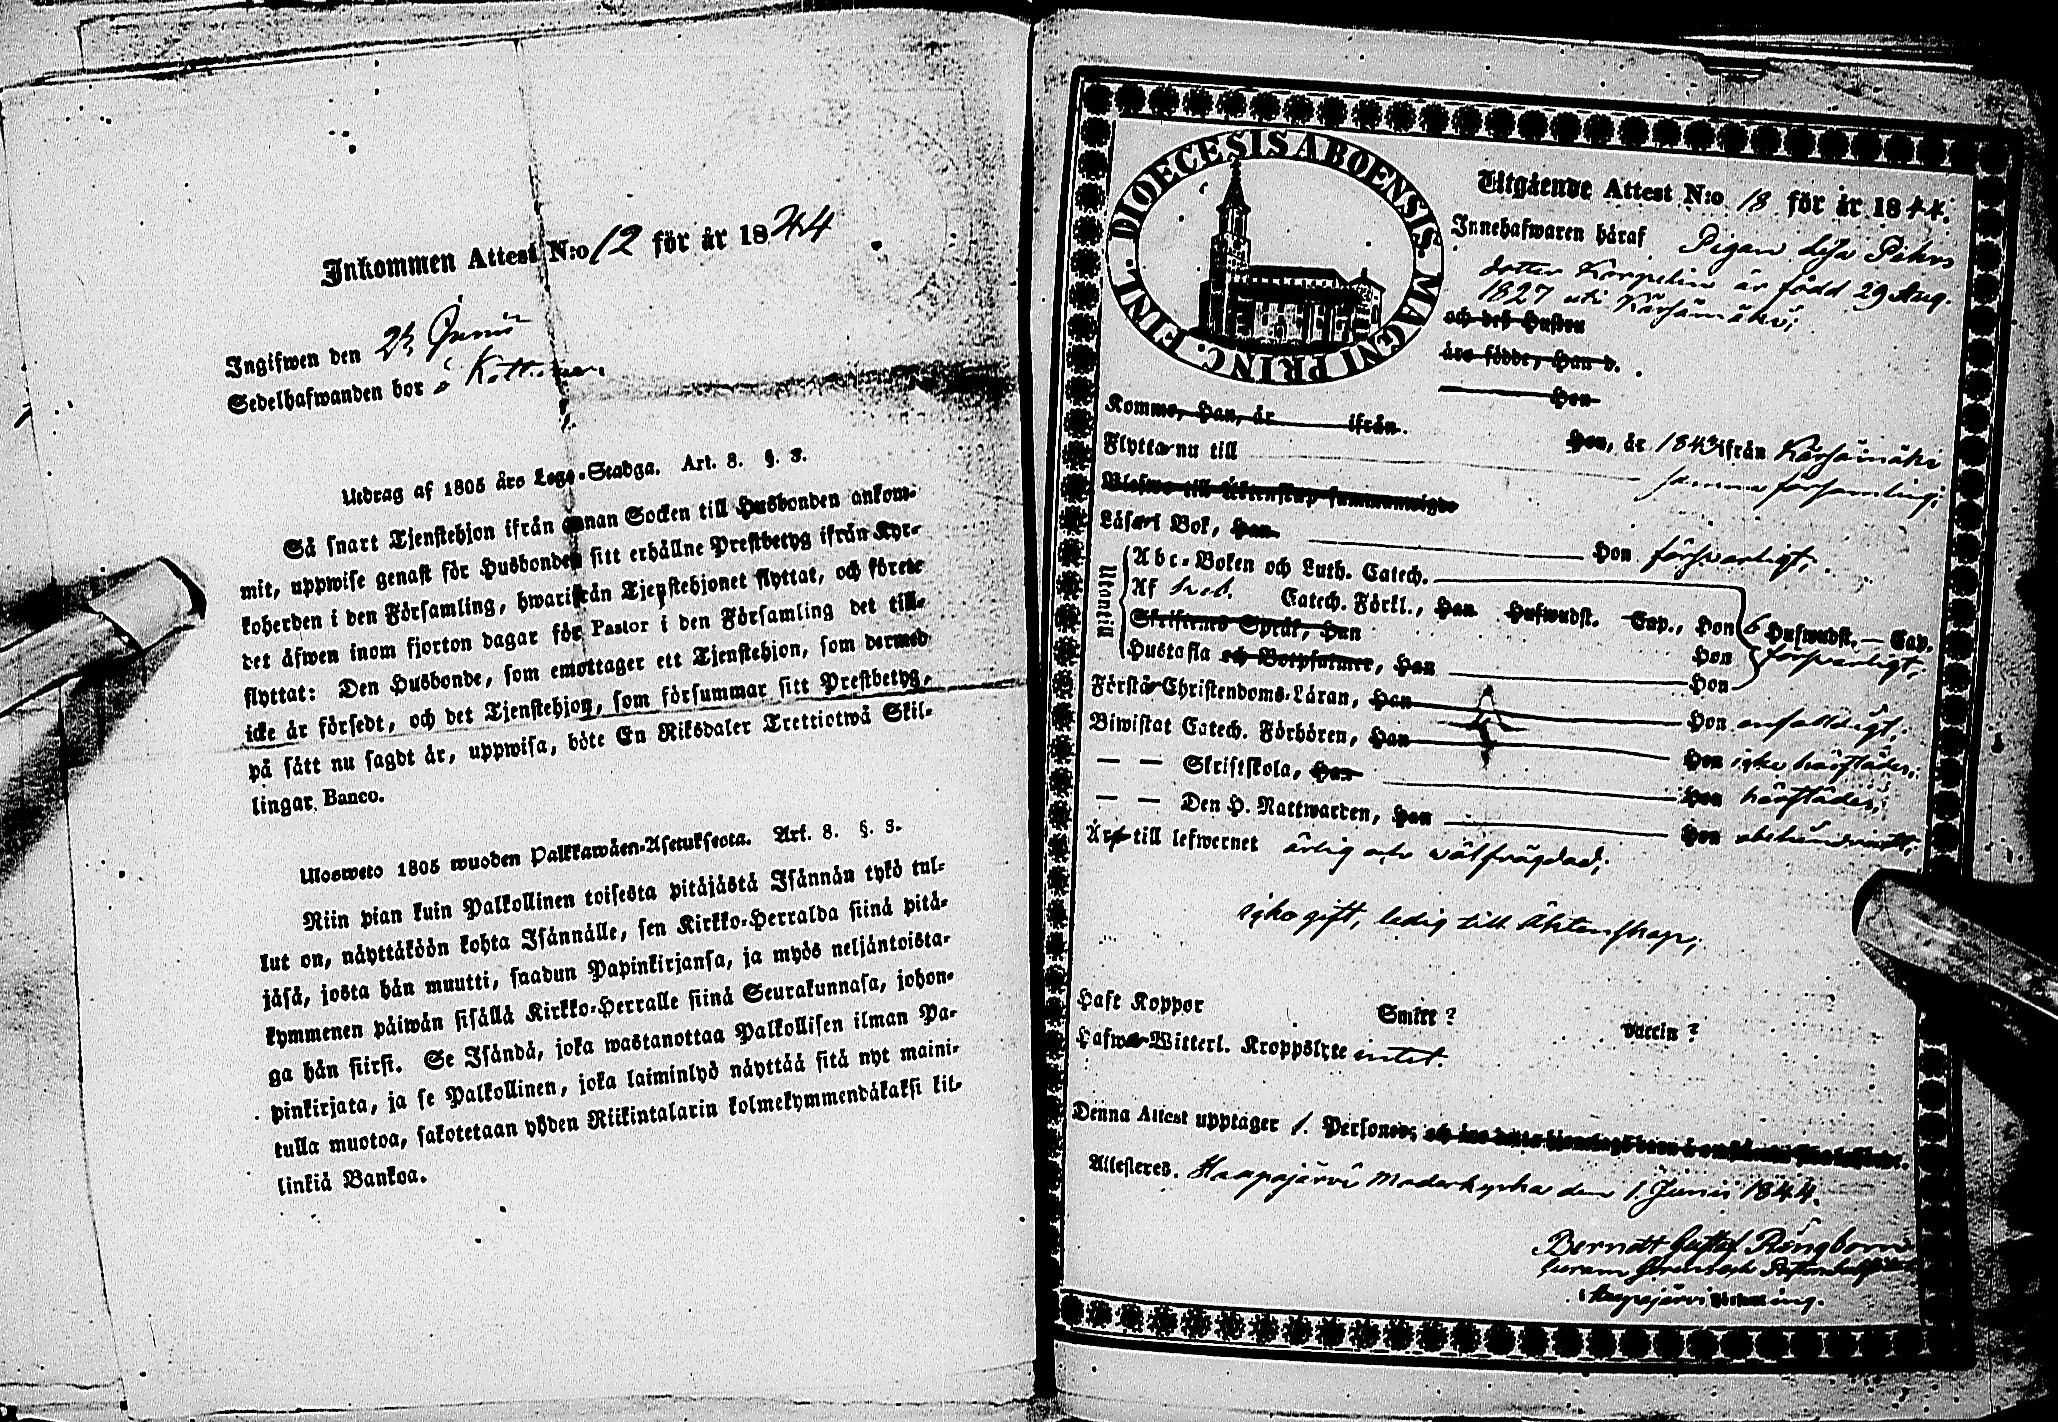 Inkommen Attest N:o 12 för år 1844
Ingifwen den 23 Junii
Sedelhafwanden bor å
Utdrag af 1805 års Lego-Stadga. Art. 8. §. 3.
Så snart Tjenstehjon ifrån annan Socken till Husbonden ankom-
mit, uppwise genast för Husbonden sitt erhållne Prestbetyg ifrån Kyr-
koherden i den Församling, hwarifrån Tjenstehjonet flyttat, och förete
det äfwen inom fjorton dagar för Pastor i den Församling det till-
flyttat: Den Husbonde, som emottager ett Tjenstehjon, som dermed
icke är försedt, och det Tjenstehjon, som försummar sitt Prestbetyg,
på sätt nu sagdt är, uppwisa, böte En Riksdaler Trettiotwå Skil-
lingar Banco.
Ulosweto 1805 wuoden Palkkawäen-Asetuksesta. Art. 8. §. 3.
Niin pian kuin Palkollinen toisesta pitäjästä Isännän tykö tul-
lut on, näyttäköön kohta Isännälle, sen Kirkko-Herralda siinä pitä-
jäsä, josta hän muutti, saadun Papinkirjansa, ja myös neljäntoista-
kymmenen päiwän sisällä Kirkko-Herralle siinä Seurakunnasa, johon-
ga hän siirsi. Se Isändä, joka wastanottaa Palkollisen ilman Pa-
pinkirjata, ja se Palkollinen, joka laiminlyö näyttää sitä nyt maini-
tulla muotoa, sakotetaan yhden Riikintalarin kolmekymmendäkaksi kil-
linkiä Bankoa.
DIOECESIS ABOENSIS. MAGNI PRINC. FINL.
Utgående Attest N:o 18 för år 1844.
Innehafwaren häraf Pigan Lisa Pehrs
dotter Korpelin är född 29 Aug.
1827 uti Kärsämäki;
och des Hustru
äro födde, Han d.
Hon
Komne, Han, år ifrån
Hon, år 1843 ifrån Kärsämäki
Flyttar nu till samma församling;
Läser i Bok, Han Hon försvarligt,
Utontill
Abc-Boken och Luth. Catech.
Af Sveb. Catech. Förkl., Han Hufwudst. Cap., Hon 6 Hufwudst. Cap.
Skriftenes Språk, Han Hon försvarligt,
Hustafla och Botpsalmer, Han Hon
Förstår Christendoms-Läran, Han Hon enfaldigt,
Biwistat Catech. Förhören, Han Hon icke härstädes;
Skriftskola, Han Hon härstädes;
Den H. Nattwarden, Han Hon
Är till lefwernet ärlig och välfrägdad;
icke gift, ledig till äktenskap;
Haft Koppor Smitt? Vaccin?
Hafwer Witterl. Kroppslyte intet.
Denna Attest upptager 1. Personer;
Attesteres. Haapajärvi Moderkyrka den 1. Junii 1844.
Berndt Gustaf Ringbom
i Haapajärvi